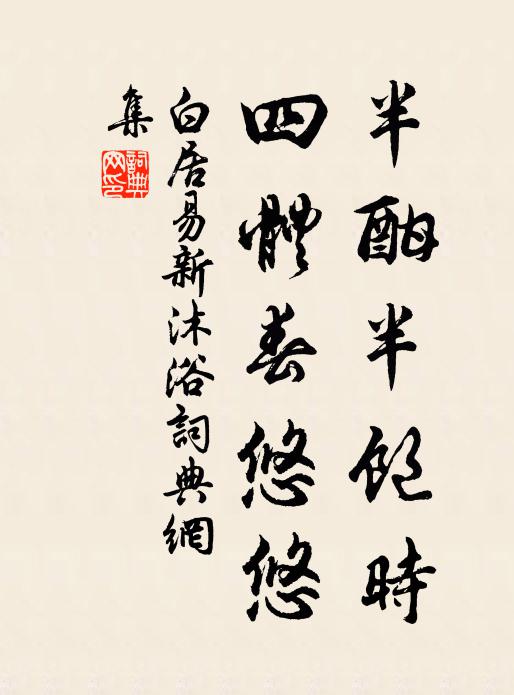 半酣半飽時
四體春悠悠
白居易新沐浴詞典網
集
詞典
网印